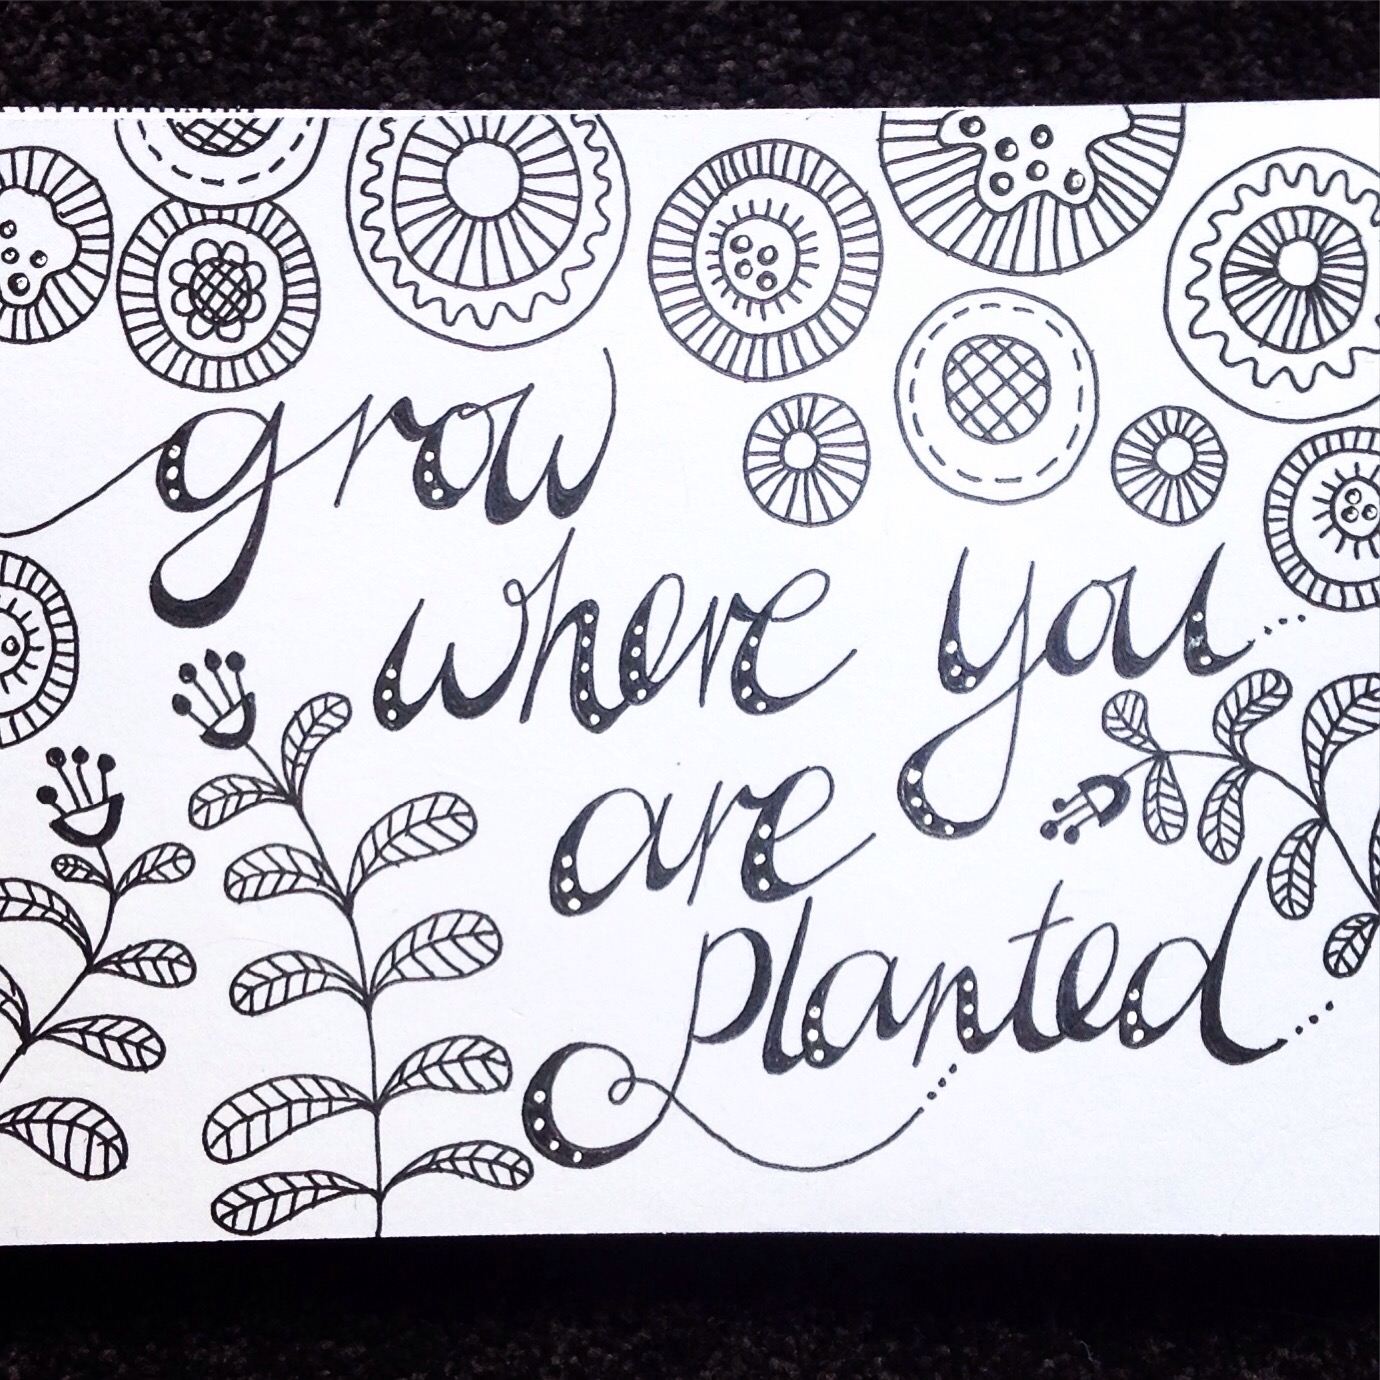 grow
where you
are
planted